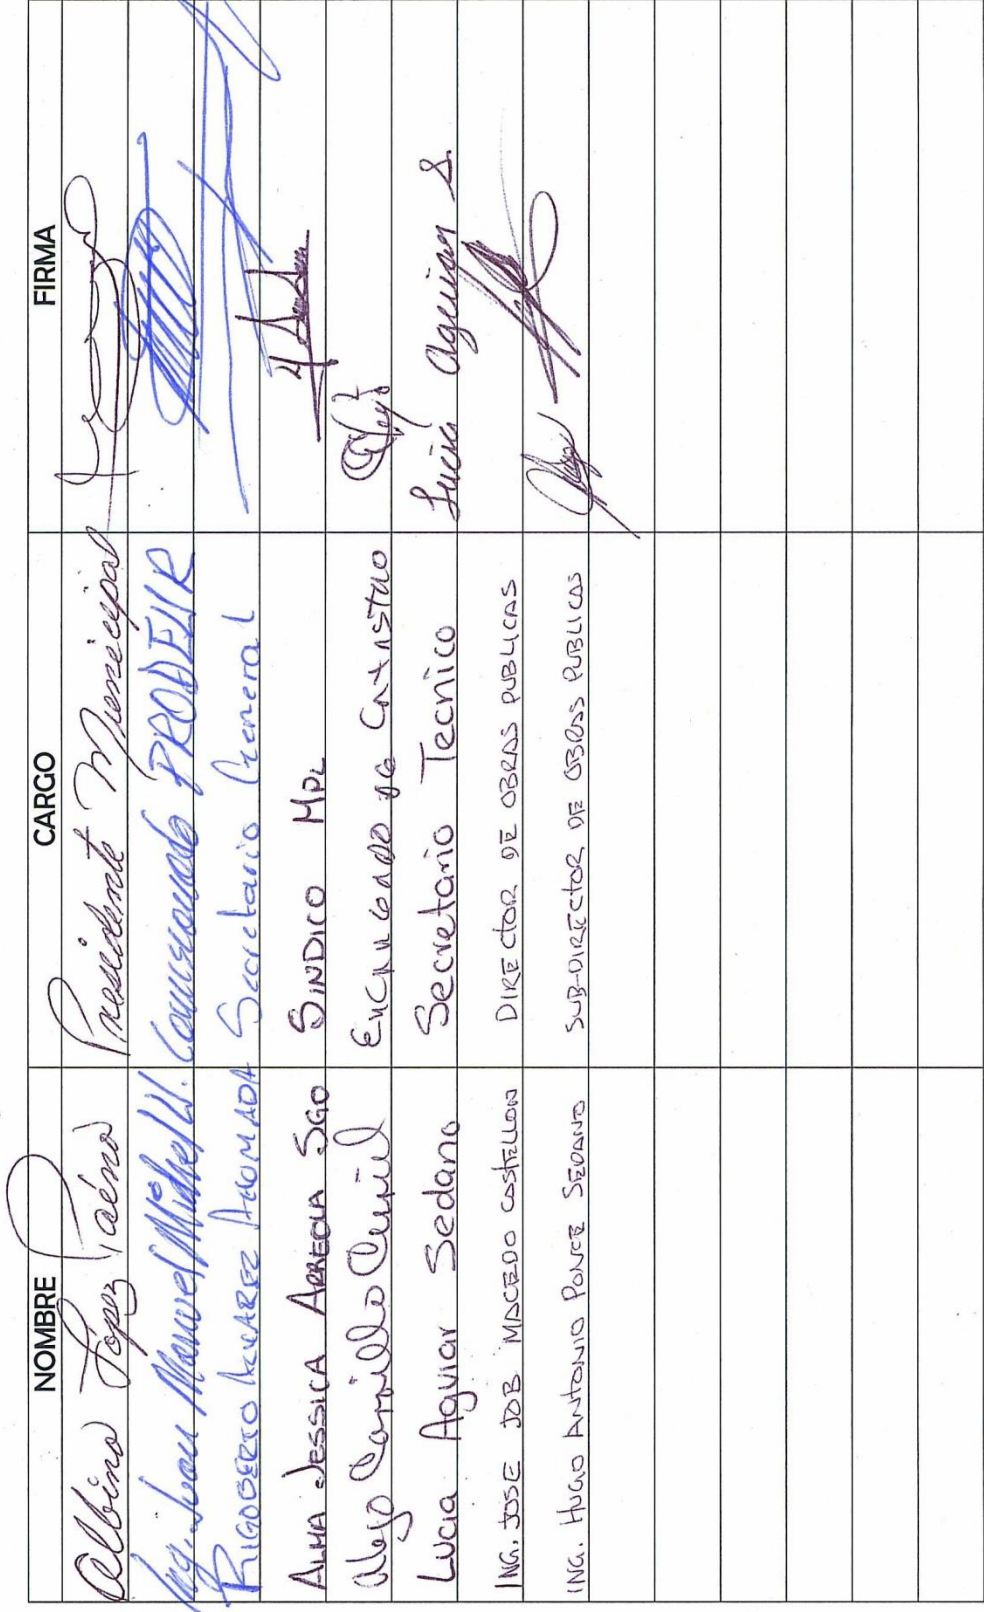 NOMBRE CARGO FIRMA
Albino López Presidente Municipal
Ing. Juan Manuel Michel U. Comisionado PRODEUR
RIGOBERTO ALVAREZ AHUMADA Secretario General
ALMA JESSICA ARREOLA SGO SINDICO MPL
Alejo Carrillo Curiel Encargado de Catastro
Lucia Aguiar Sedano Secretario Tecnico Lucia Aguiar S.
ING. JOSE JOB MACEDO CASTELLON DIRECTOR DE OBRAS PUBLICAS
ING. HUGO ANTONIO PONCE SEDANO SUB-DIRECTOR DE OBRAS PUBLICAS